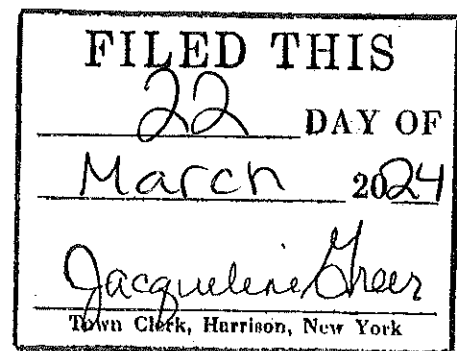 FILED THIS
22 DAY OF
March 2024
Jacqueline Greer
Town Clerk, Harrison, New York